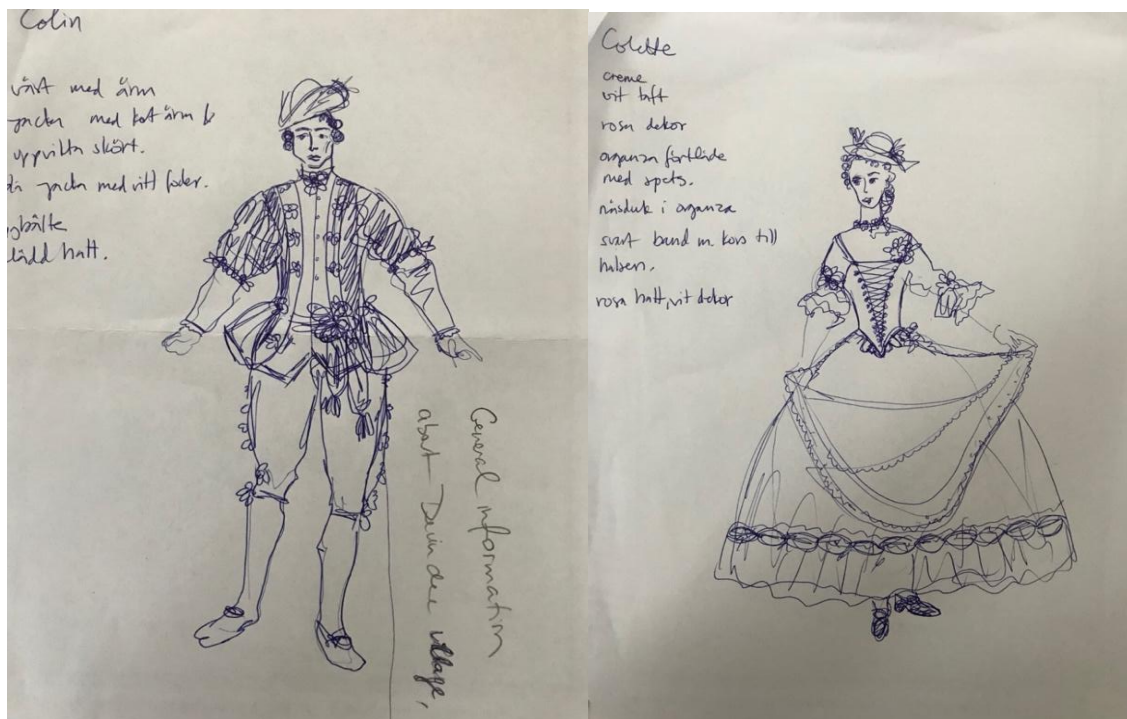 Colin
väst med ärm
med kort ärm
uppvikta skört.
med vitt foder.
hatt.
General information
about
village,
Colette
creme
vit taft
rosa dekor
organza förkläde
med spets.
näsduk i organza
svart band m. kors till
halsen.
rosa hatt, vit dekor